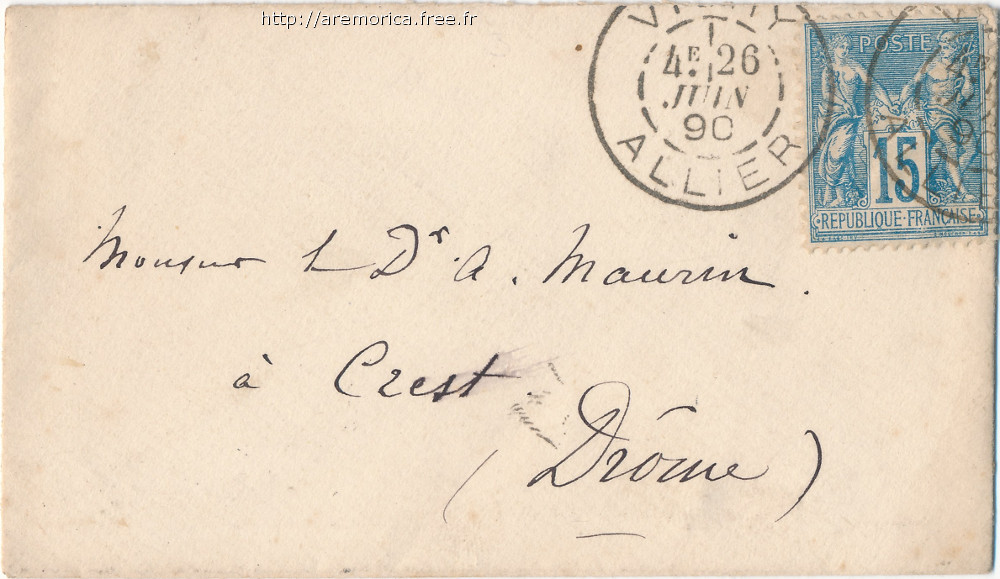 http://aremorica.free.fr
VICHY
4E 26
JUIN
90
ALLIER
POSTE
15
RÉPUBLIQUE·FRANÇAISE
Monsieur le Dr A. Maurin.
à Crest
(Drôme)